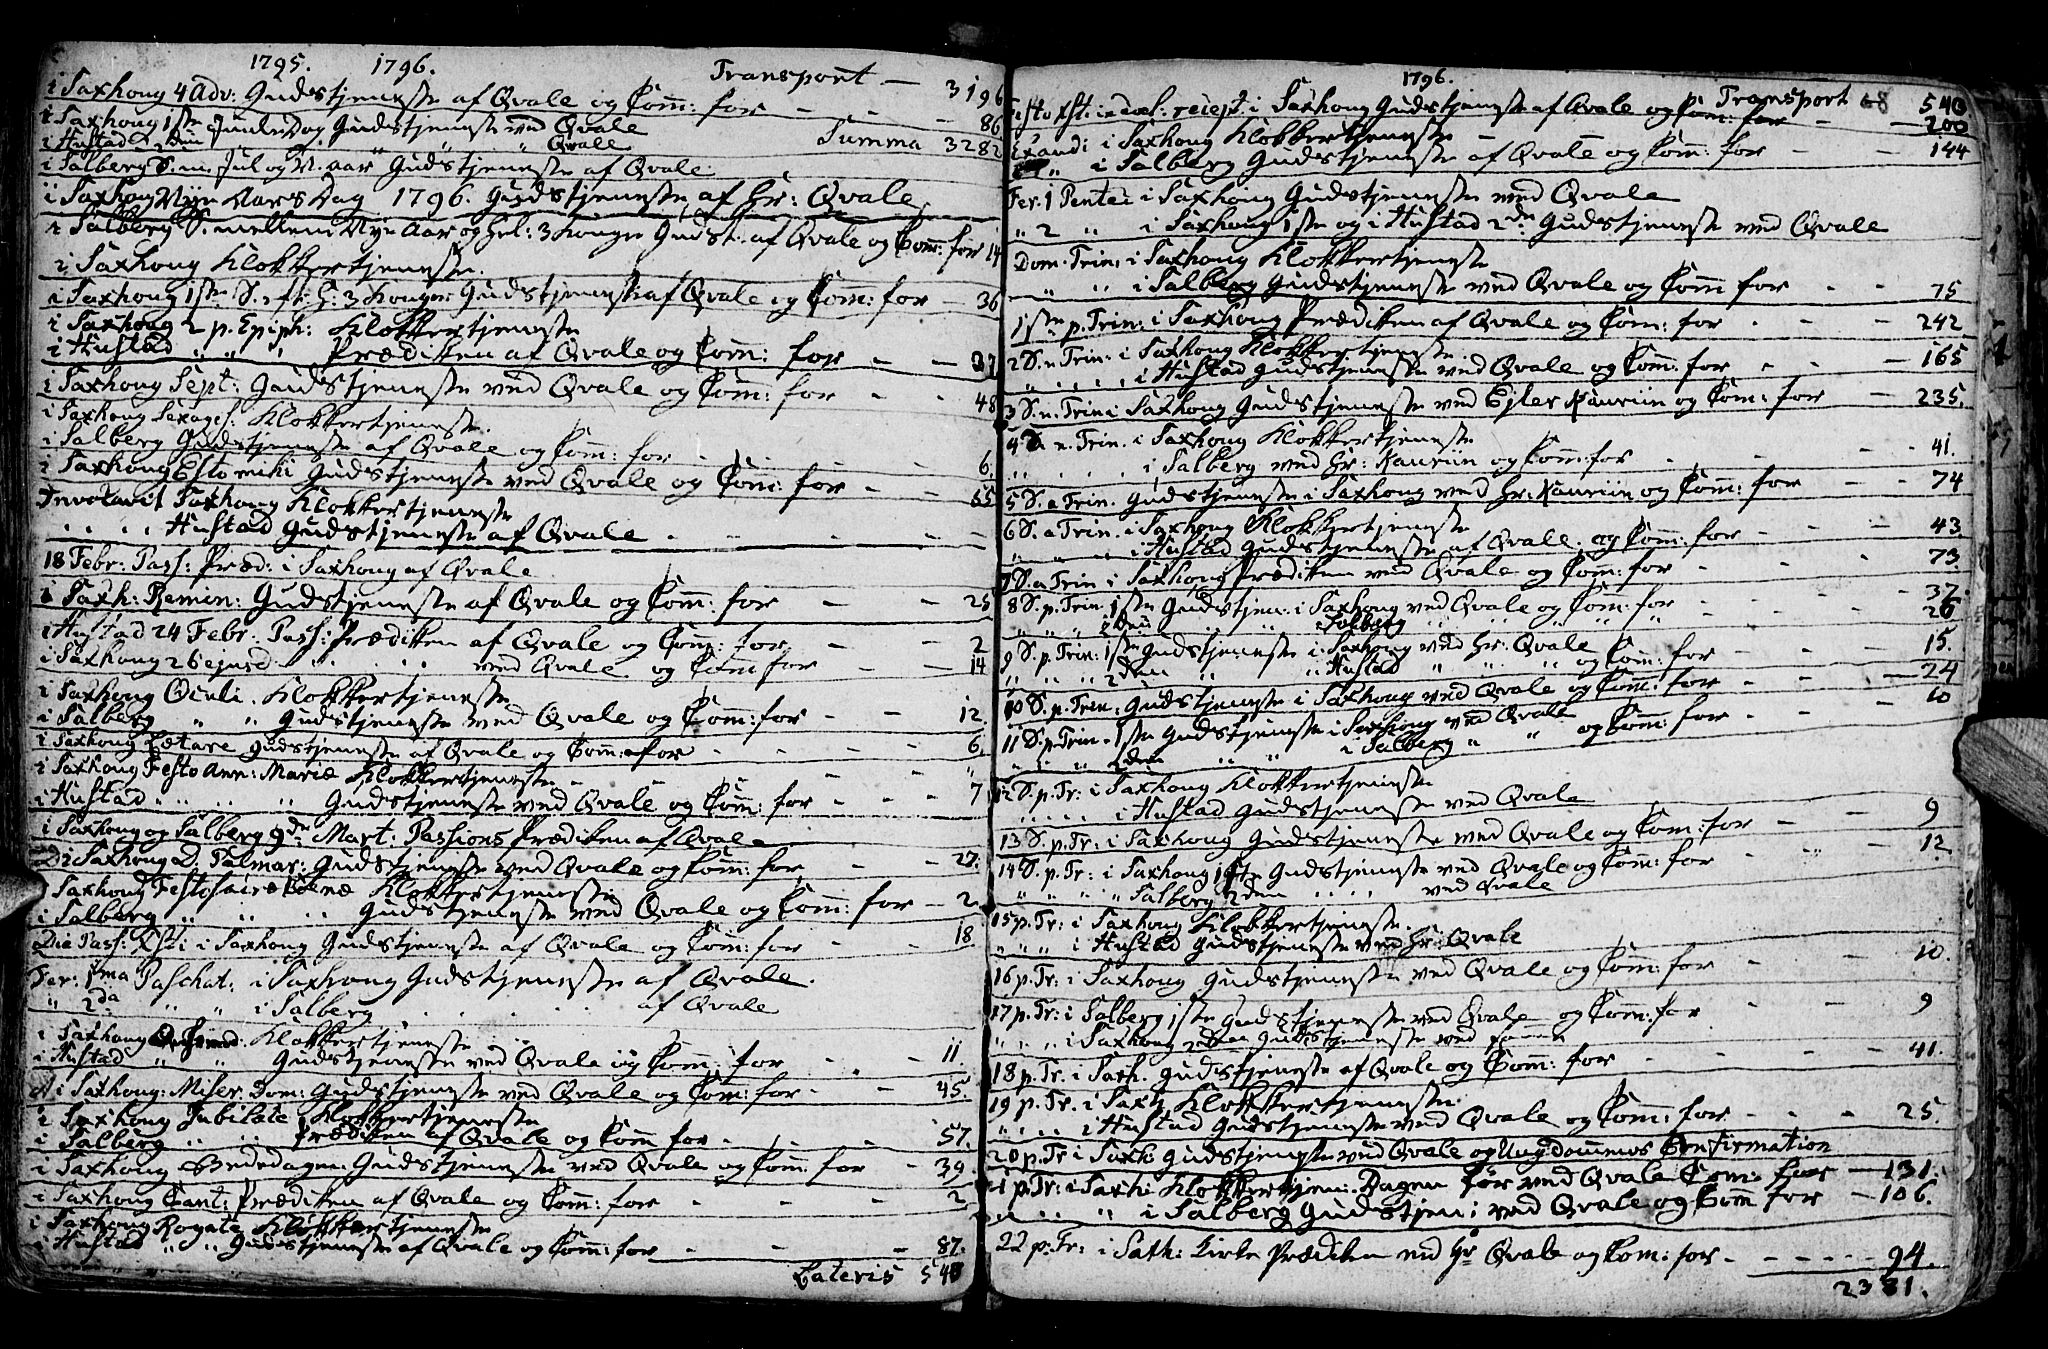 1795. 1796.
Transport — 3196
i Saxhoug 4 Adv: Gudstjeneste af Qvale og Com: for — — — 86
i Saxhoug 1ste Juledag Gudstjeneste ved Qvale Summa 3282
i Hustad 2den " " " Qvale
i Salberg S. m. Jul og N. aar Gudstjeneste af Qvale
i Saxhoug Nyt Aars Dag 1796. Gudstjeneste af Hr: Qvale
i Salberg S. mellem Nyt Aar og Hel: 3 Konger Gudst. af Qvale og Com: for 14
i Saxhoug Klokkertjeneste.
i Saxhoug 1ste S. eft: H: 3 Konger Gudstjeneste af Qvale og Com: for 36
i Saxhoug 2 p. Epiph: Klokkertjeneste
i Hustad " " Prædiken af Qvale og Com: for — — 37
i Saxhoug Sept: Gudstjeneste ved Qvale og Com: for - - 48
i Saxhoug Sexages: Klokkertjeneste.
i Salberg Gudstjeneste af Qvale og Com: for - - 6.
i Saxhoug Esto mihi Gudstjeneste ved Qvale og Com: for - - 65
Invocavit Saxhoug Klokkertjeneste
. . . . Hustad Gudstjeneste af Qvale - - - -
18 Febr: Pass: Præd: i Saxhoug af Qvale
i Saxh: Remin: Gudstjeneste af Qvale og Com: for — — 25
i Hustad 24 Febr: Pass: Prædiken af Qvale og Com: for — — 2
i Saxhoug 26 ejusd . . . . ved Qvale og Com for — — 14
i Saxhoug Oculi. Klokkertjeneste
i Salberg " " Gudstjeneste ved Qvale og Com: for — — 12.
i Saxhoug Lætare Gudstjeneste af Qvale og Com: for - - - 6.
i Saxhoug Festo Ann: Mariæ Klokkertjeneste - - - "
i Hustad . . . . " Gudstjeneste ved Qvale og Com: for - - - 7
i Saxhoug og Salberg 9de Mart: Passions Prædiken af Qvale
i Saxhoug D. Palmar: Gudstjeneste ved Qvale og Com: for — — 27.
i Saxhoug Festo Klokkertjeneste
i Salberg " " " Gudstjeneste ved Qvale og Com: for — 2.
Die Pass: Xsti i Saxhoug Gudstjeneste af Qvale og Com: for - - 18
Fer: 1ma Paschat: i Saxhoug Gudstjeneste af Qvale.
" 2da " " i Salberg . . . . . af Qvale
i Saxhoug Klokkertjeneste
i Hustad " " Gudstjeneste ved Qvale og Com: for - - 11
i Saxhoug: Miser. Dom: Gudstjeneste ved Qvale og Com: for - - 45.
i Saxhoug Jubilate Klokkertjeneste
i Salberg " " Prædiken af Qvale og Com for - - - 57.
i Saxhoug Bededagen: Gudstjeneste ved Qvale og Com: for - 39
i Saxhoug Cant: Prædiken af Qvale og Com: for - - - 2
i Saxhoug Rogate Klokkertjeneste
i Hustad " " Gudstjeneste af Qvale og Com: for - - - 87.
Lateris 548
1796.
Transport 548
Festo Xsti: in coel: recept: i Saxhoug Gudstjeneste af Qvale og Com: for — — 200
Exaudi i Saxhoug Klokkertjeneste
" " i Salberg Gudstjeneste af Qvale og Com: for — — 144
Fer. 1 Pente: i Saxhoug Gudstjeneste ved Qvale
" 2 " i Saxhoug 1ste og i Hustad 2de Gudstjeneste ved Qvale
Dom. Trin: i Saxhoug Klokkertjeneste
" " i Salberg Gudstjeneste ved Qvale og Com for - - 75
1ste p. Trin: i Saxhoug Prædiken af Qvale og Com: for - - 242
2 S. e Trin: i Saxhoug Klokkertjeneste
" . . . . i Hustad Gudstjeneste ved Qvale og Com: for - - 165
3 S. e. Trin: i Saxhoug Gudstjeneste ved Ejler Kauriin og Com: for — 235.
4 S. e. Trin. i Saxhoug Klokkertjeneste
. . . . . i Salberg ved Hr: Kauriin og Com: for - - - 41.
5 S. a Trin. Gudstjeneste i Saxhoug ved Hr: Kauriin og Com: for — — 74
6 S. a Trin. i Saxhoug Klokkertjeneste
" " " " i Hustad Gudstjeneste af Qvale og Com: for - - 43
7 S. a Trin i Saxhoug Prædiken ved Qvale og Com: for - - 73
8 S. p. Trin 1ste Gudstjen: i Saxhoug ved Qvale og Com: for - - 37.
" " " 2den " " Salberg " " " " " 26
9 S. p. Trin: 1ste Gudstjeneste i Saxhoug ved Hr: Qvale - - 15.
" " " 2den " " Hustad " " " og Com: for - - 24
10 S. p. Trin: Gudstjeneste i Saxhoug ved Qvale og Com: for - - 10
11 S. p. Trin. 1ste Gudstjeneste i Saxhoug ved Qvale
" " " 2den " " i Salberg " " og Com: for - -
12 S. p. Tr: i Saxhoug Klokkertjeneste
. . . . . i Hustad Gudstjeneste ved Qvale
13 S. p. Tr: i Saxhoug Gudstjeneste ved Qvale og Com: for — — 9
14 S. p. Tr: i Saxhoug 1ste Gudstjeneste ved Qvale og Com: for - - 12
" " " " Salberg 2den . . . . ved Qvale
15 p. Tr: i Saxhoug Klokkertjeneste.
" " " i Hustad Gudstjeneste ved Hr: Qvale
16 p. Tr: i Saxhoug Gudstjeneste ved Qvale og Com: for - - 10.
17 p. Tr: i Salberg 1ste Gudstjeneste ved Qvale og Com: for - - 9
" " " i Saxhoug 2den Gudstjeneste ved samme
18 p. Tr. i Saxh. Gudstjeneste af Qvale og Com: for - - - 41.
19 p. Tr. i Saxh. Klokkertjeneste.
" . . . i Hustad Gudstjeneste ved Qvale og Com: for - - - 25.
20 p. Tr i Saxh: Gudstjeneste ved Qvale og Ungdommens Confirmation
21 p. Tr: i Saxh: Klokkertjen: Dagen før ved Qvale Com: for — 131.
" . . " i Salberg Gudstjen: ved Qvale og Com for — 106.
22 p. Tr: i Saxh: Kirke Prædiken ved Hr Qvale og Com: for - - - 94.
2381.